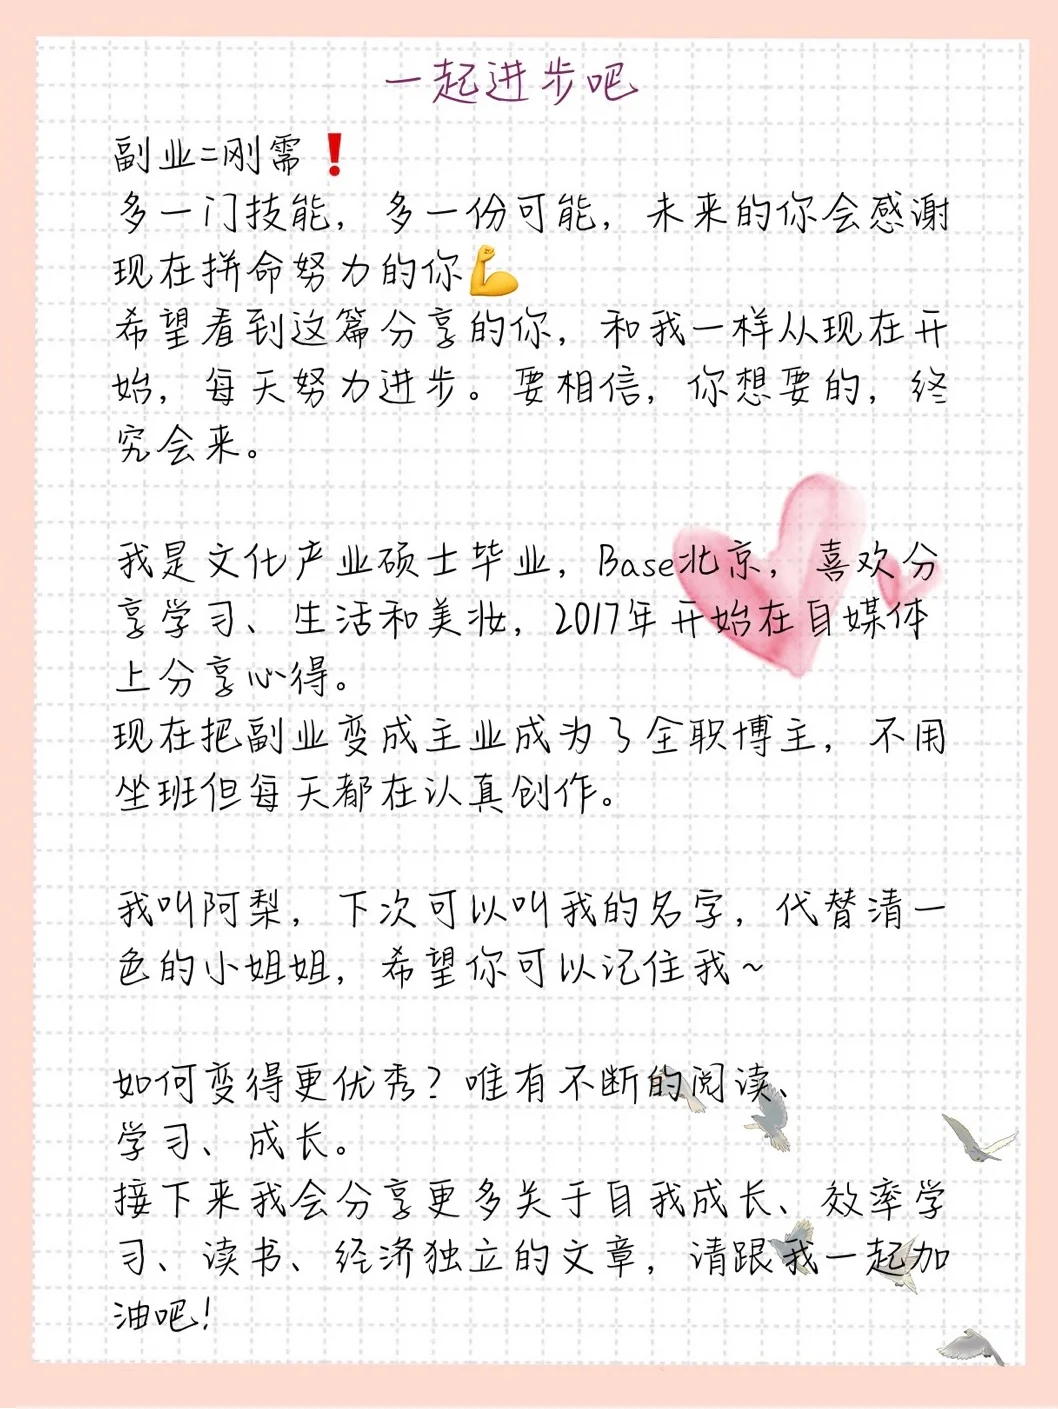 一起进步吧
副业=刚需❗
多一门技能，多一份可能，未来的你会感谢
现在拼命努力的你💪
希望看到这篇分享的你，和我一样从现在开
始，每天努力进步。要相信，你想要的，终
究会来。
我是文化产业硕士毕业，Base北京，喜欢分
享学习、生活和美妆，2017年开始在自媒体
上分享心得。
现在把副业变成主业成为了全职博主，不用
坐班但每天都在认真创作。
我叫阿梨，下次可以叫我的名字，代替清一
色的小姐姐，希望你可以记住我~
如何变得更优秀？唯有不断的阅读、
学习、成长。
接下来我会分享更多关于自我成长、效率学
习、读书、经济独立的文章，请跟我一起加
油吧！